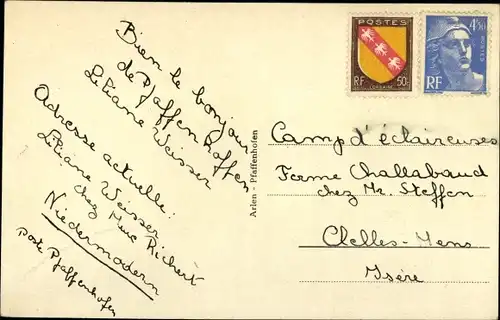 Bien le bonjour
de Pfaffenhoffen
Liliane Weisser
Adresse actuelle:
Liliane Weisser
chez Mme Richert
Niedermodern
poste Pfaffenhofen
Arlen - Pfaffenhofen
POSTES
RF 50c
LORRAINE
4f50
POSTES
RF
Camp d'éclaireuses
Ferme Challabaud
chez Mr. Steffen
Clelles-Mens
Isère